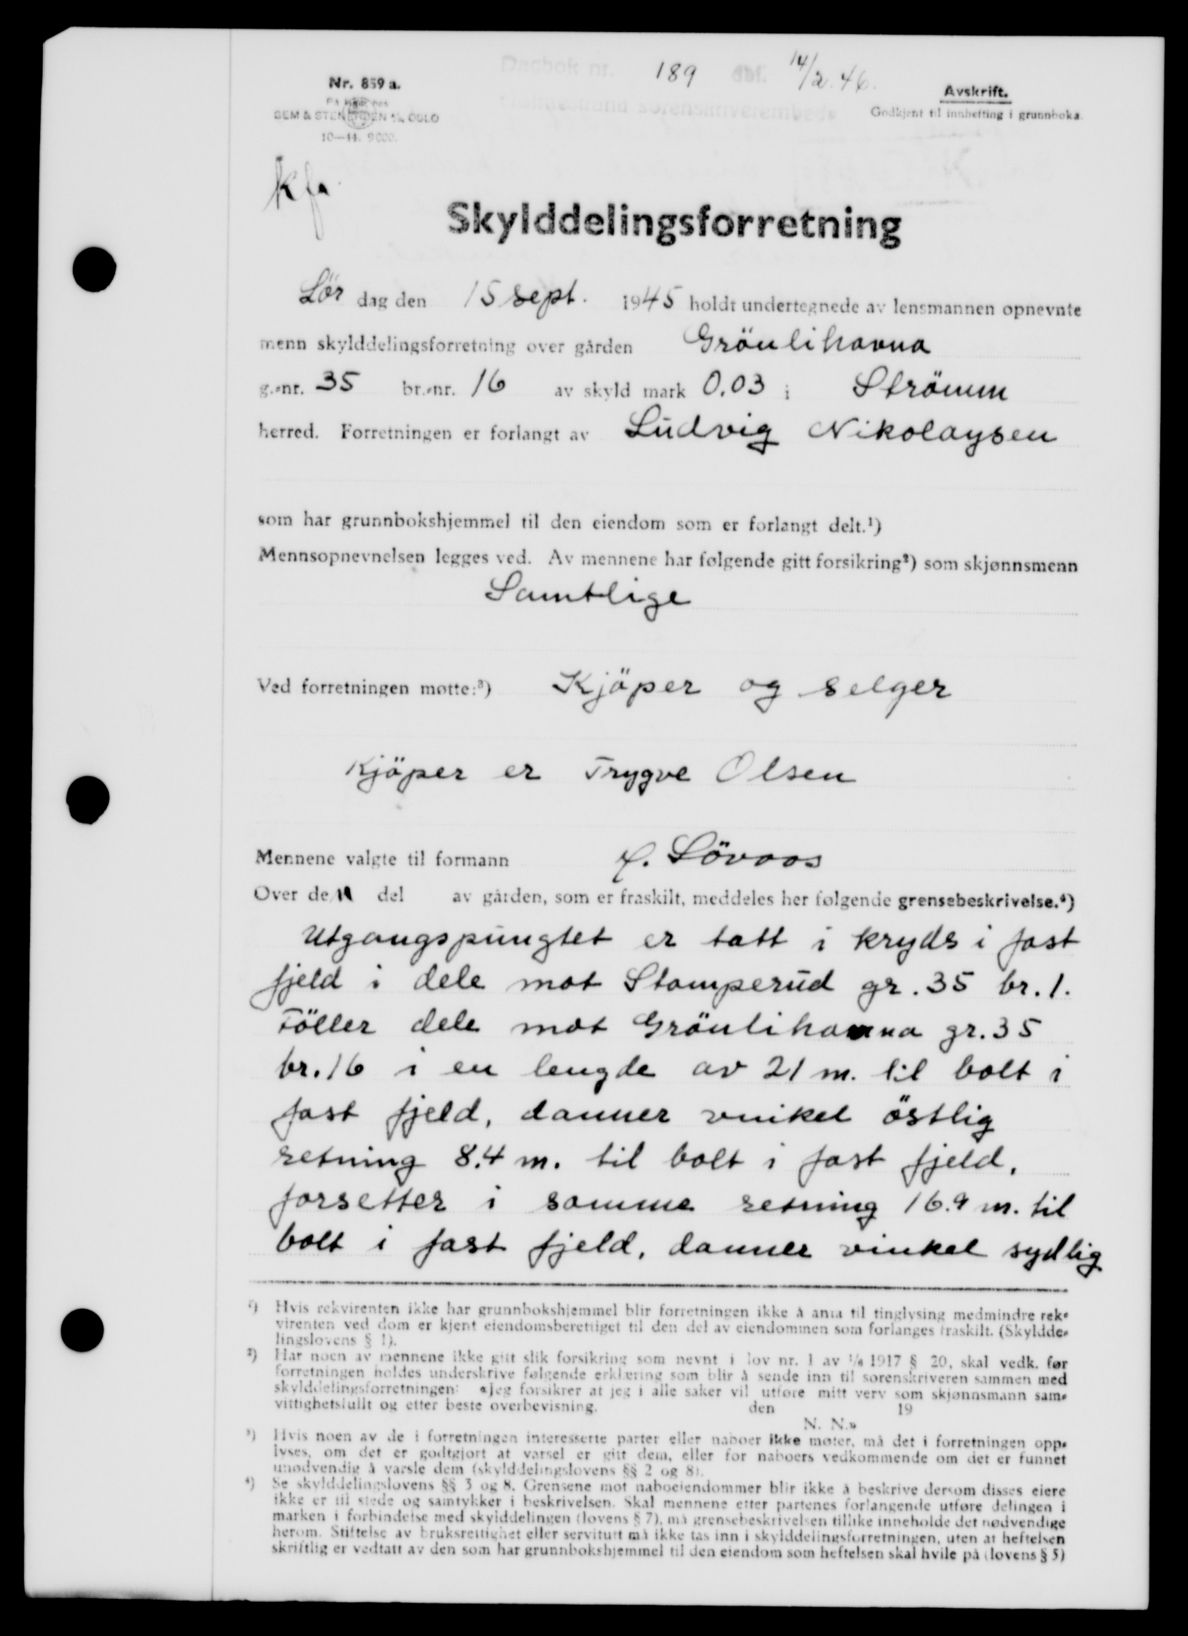 Dagbok nr. 189 dat. 14/2.46.
Holmestrand sorenskriverembede
Nr. 859 a.
På lager hos
SEM & STENERSEN A/S OSLO
10—44. 9000.
Avskrift.
Godkjent til innhefting i grunnboka.
kfr.
Skylddelingsforretning
Lör dag den 15 sept. 1945 holdt undertegnede av lensmannen opnevnte
menn skylddelingsforretning over gården Grönlihavna
g.-nr. 35 br.-nr. 16 av skyld mark 0.03 i Strömm
herred. Forretningen er forlangt av Ludvig Nikolaysen
som har grunnbokshjemmel til den eiendom som er forlangt delt.¹)
Mennsopnevnelsen legges ved. Av mennene har følgende gitt forsikring²) som skjønnsmenn
Samtlige
Ved forretningen møtte:³) Kjöper og selger
Kjöper er Trygve Olsen
Mennene valgte til formann Lövaas
Over de del av gården, som er fraskilt, meddeles her følgende grensebeskrivelse.⁴)
Utgangspungtet er tatt i kryds i fast
fjeld i dele mot Stamperud gr. 35 br. 1.
Föller dele mot Grönlihavna gr. 35
br. 16 i en lengde av 21 m. til bolt i
fast fjeld, danner vinkel östlig
retning 8.4 m. til bolt i fast fjeld,
forsetter i samme retning 16.9 m. til
bolt i fast fjeld, danner vinkel sydlig
¹) Hvis rekvirenten ikke har grunnbokshjemmel blir forretningen ikke å anta til tinglysing medmindre rek-
virenten ved dom er kjent eiendomsberettiget til den del av eiendommen som forlanges fraskilt. (Skyldde-
lingslovens § 1).
²) Har noen av mennene ikke gitt slik forsikring som nevnt i lov nr. 1 av 1/6 1917 § 20, skal vedk. før
forretningen holdes underskrive følgende erklæring som blir å sende inn til sorenskriveren sammen med
skylddelingsforretningen: «Jeg forsikrer at jeg i alle saker vil utføre mitt verv som skjønnsmann sam-
vittighetsfullt og etter beste overbevisning. den 19
N. N.»
³) Hvis noen av de i forretningen interesserte parter eller naboer ikke møter, må det i forretningen opp-
lyses, om det er godtgjort at varsel er gitt dem, eller for naboers vedkommende om det er funnet
unødvendig å varsle dem (skylddelingslovens §§ 2 og 8).
⁴) Se skylddelingslovens §§ 3 og 8. Grensene mot naboeiendommer blir ikke å beskrive dersom disses eiere
ikke er til stede og samtykker i beskrivelsen. Skal mennene etter partenes forlangende utføre delingen i
marken i forbindelse med skylddelingen (lovens § 7), må grensebeskrivelsen tillike inneholde det nødvendige
herom. Stiftelse av bruksrettighet eller servitutt må ikke tas inn i skylddelingsforretningen, uten at heftelsen
skriftlig er vedtatt av den som har grunnbokshjemmel til den eiendom som heftelsen skal hvile på (lovens § 5)